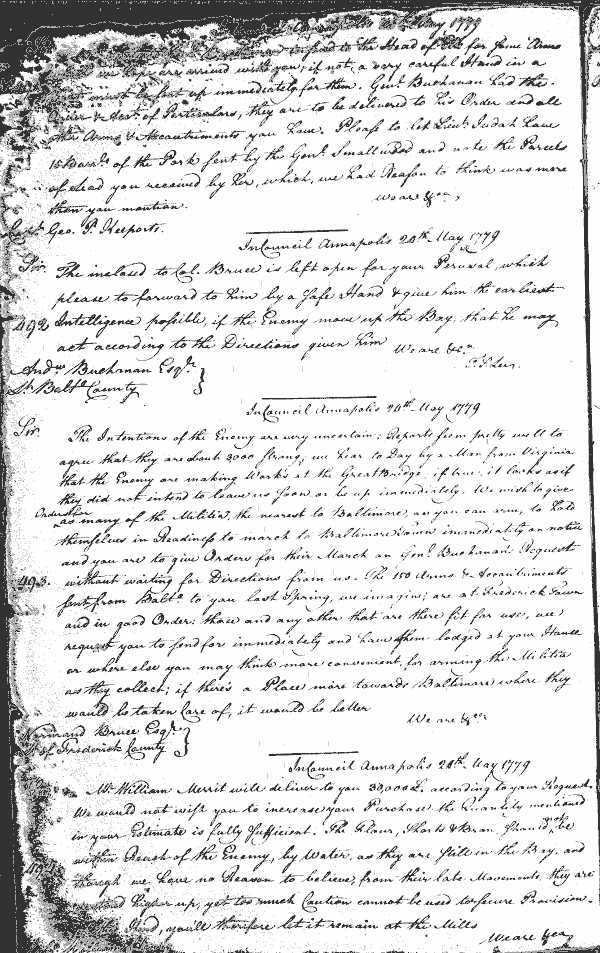 May 1779
to the Head of Elk for some Arms
we hope are arrived with you; if not, a very careful Hand in a
must be sent up immediately for them. Genl. Buchanan had the
Order & of Particulars, they are to be delivered to his Order and all
other Arms & Accoutriments you have. Please to let Lieut. Judah have
15 Barrls. of the Pork sent by the Genl. Smallwood and note the Parcels
of Lead you received by her, which, we had Reason to think was more
than you mention.
We are &ca,
Capt. Geo. P. Keeports.
In Council Annapolis 20th May 1779
Sir.
The inclosed to Col. Bruce is left open for your Perusal, which
please to forward to him by a safe Hand & give him the earliest
492 Intelligence possible, if the Enemy move up the Bay, that he may
act according to the Directions given him
We are &ca
T. S. Lee.
Andw. Buchanan Esqr.
Lt. Balto. County
In Council Annapolis 20th May 1779
Sir.
The Intentions of the Enemy are very uncertain; Reports from pretty well to
agree that they are about 3000 strong; we hear to Day by a Man from Virginia
that the Enemy are making Works at the Great Bridge, if true, it looks as if
they did not intend to leave us soon or be up immediately. We wish to give
Orders for
as many of the Militia, the nearest to Baltimore, as you can arm, to hold
themselves in Readiness to march to Baltimore Town immediately on notice
and you are to give Orders for their March on Genl. Buchanan's Request
493. without waiting for Directions from us. The 150 Arms & Accoutriments
sent from Balto. to you last Spring, we imagine, are at Frederick Town
and in good Order; those and any other that are there fit for use, we
request you to send for immediately and have them lodged at your House
or where else you may think more convenient, for arming the Militia
as they collect; if there's a Place more towards Baltimore where they
would be taken Care of, it would be better
We are &ca
Normand Bruce Esqr.
Lt. of Frederick County
In Council Annapolis 20th May 1779
Mr. William Merrit will deliver to you 30,000 £. according to your Request.
We would not wish you to increase your Purchase, the Quantity mentioned
in your Estimate is fully sufficient. The Flour, Shorts & Bran, should not be
within Reach of the Enemy, by Water, as they are still in the Bay, and
though we have no Reason to believe, from their late Movements, they are
higher up, yet too much Caution cannot be used to secure Provision.
you'll therefore let it remain at the Mills
We are &ca